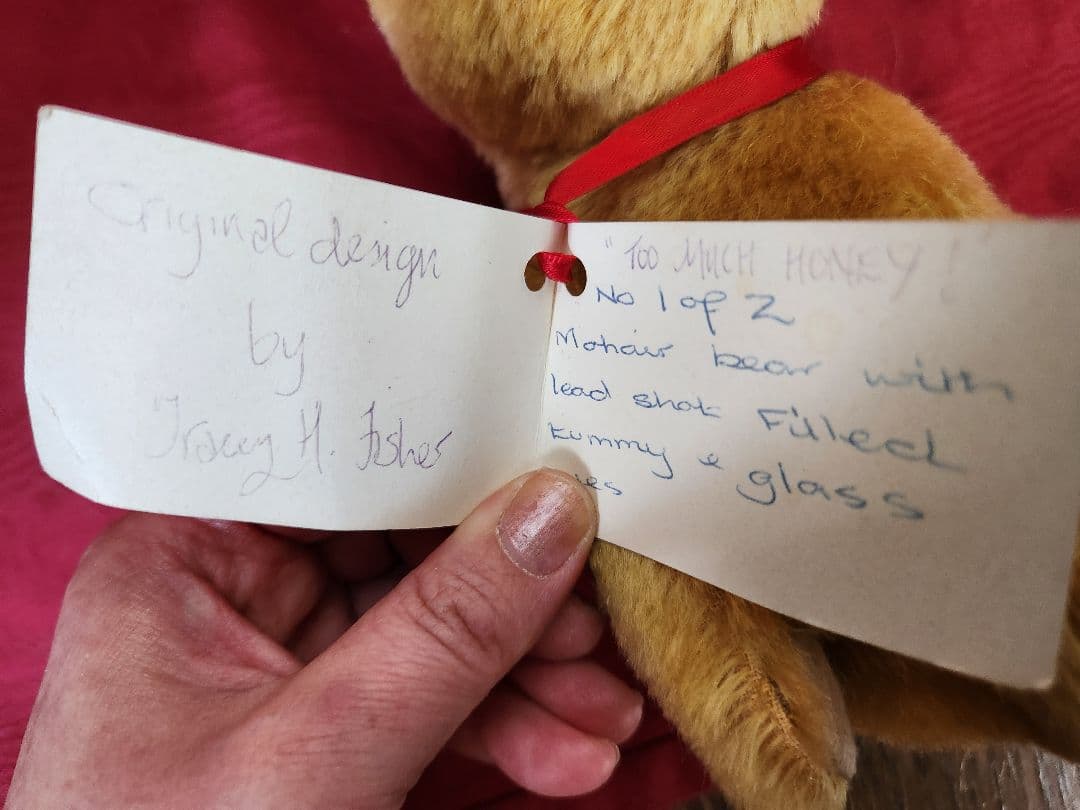 Original design
by
Tracey H. Fisher
"TOO MUCH HONEY!"
No 1 of 2
Mohair bear with
lead shot Filled
tummy & glass